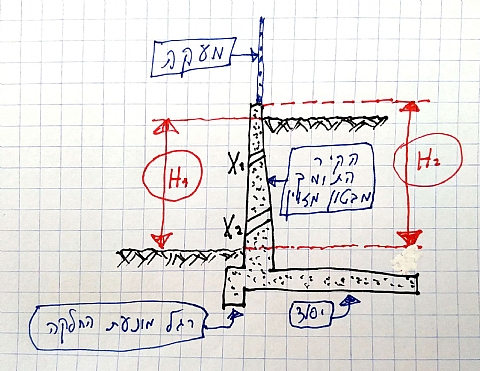 מעקה
H1
X1
הקיר
התומך
מבטון מזויין
H2
X2
רגל מונעת החלקה
יסוד